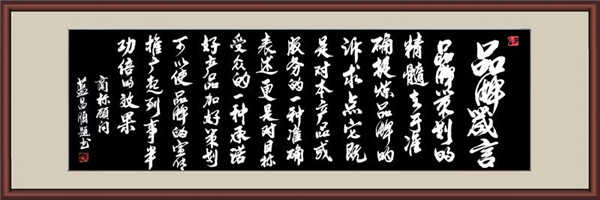 品牌箴言
品牌策划的
精髓在于准
确提炼品牌的
诉求点它既
是对本产品或
服务的一种准确
表述更是对目标
受众的一种承诺
好产品加好策划
可以使品牌的宣传
推广起到事半
功倍的效果
商标顾问
蓝昌顺题书